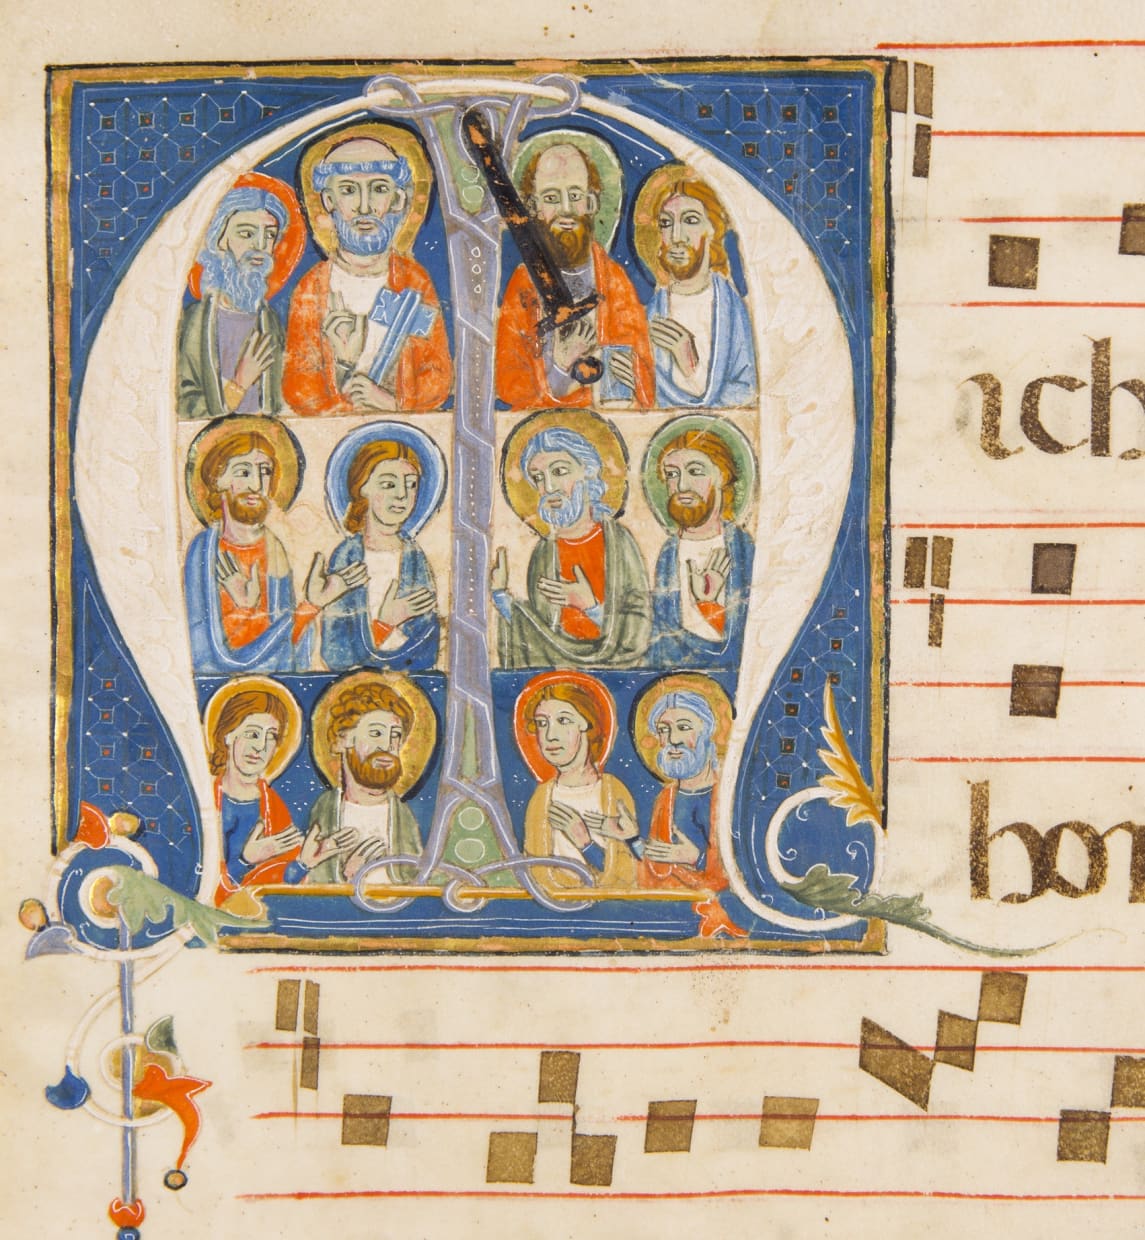 Mich
hon